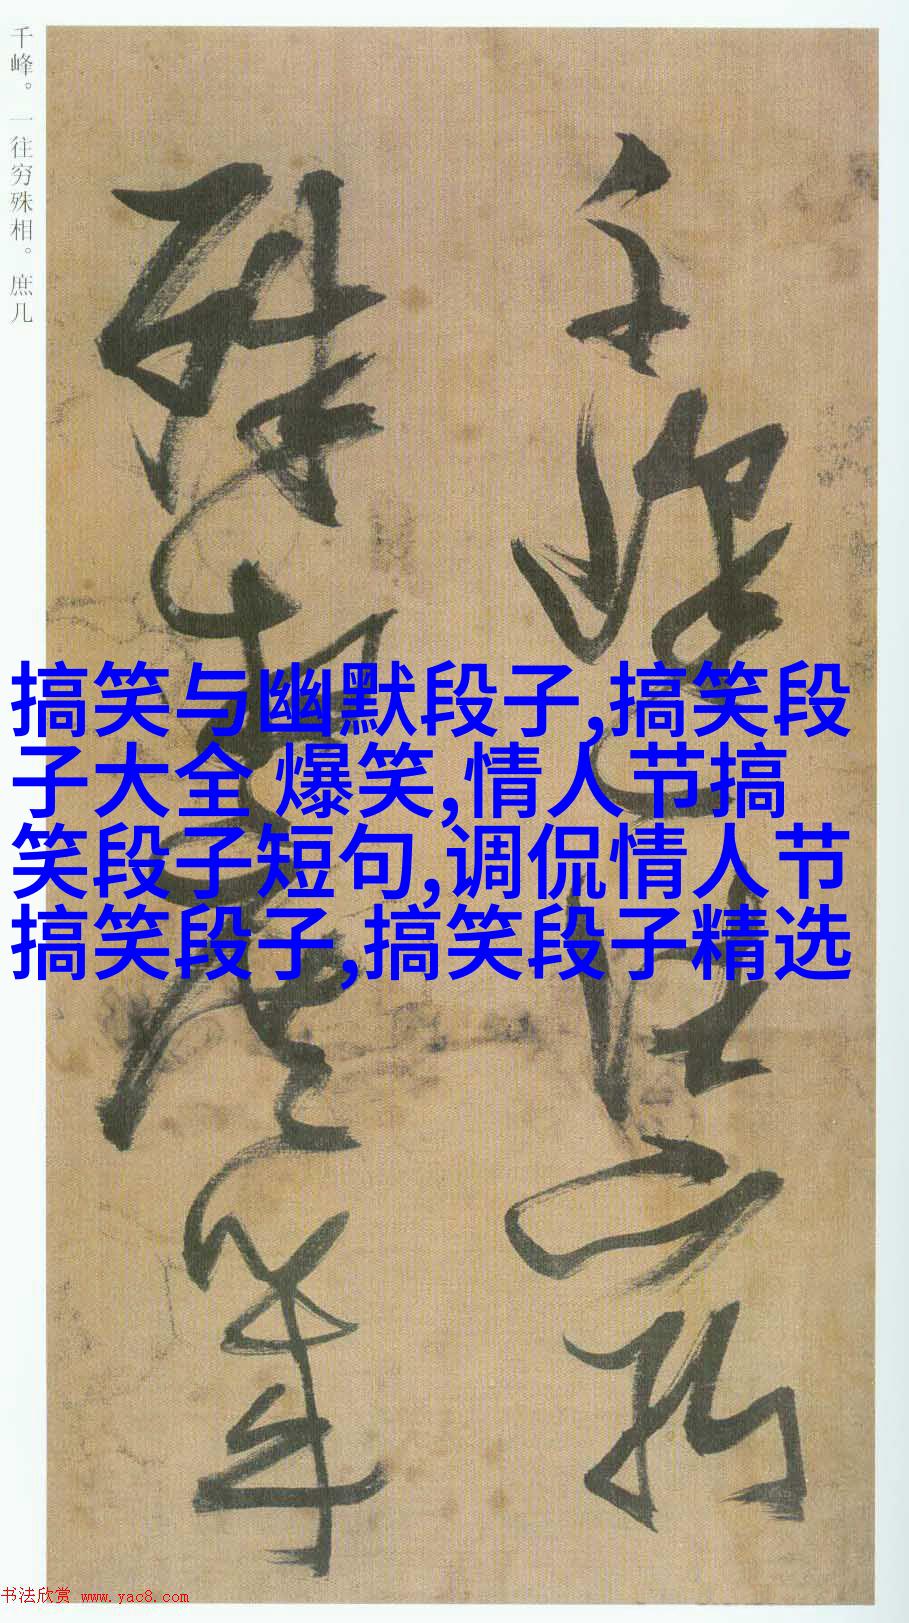 千峰。一往穷殊相。庶几
千峰一往窮
殊相庶幾
搞笑与幽默段子,搞笑段
子大全 爆笑,情人节搞
笑段子短句,调侃情人节
搞笑段子,搞笑段子精选
书法欣赏 www.yac8.com